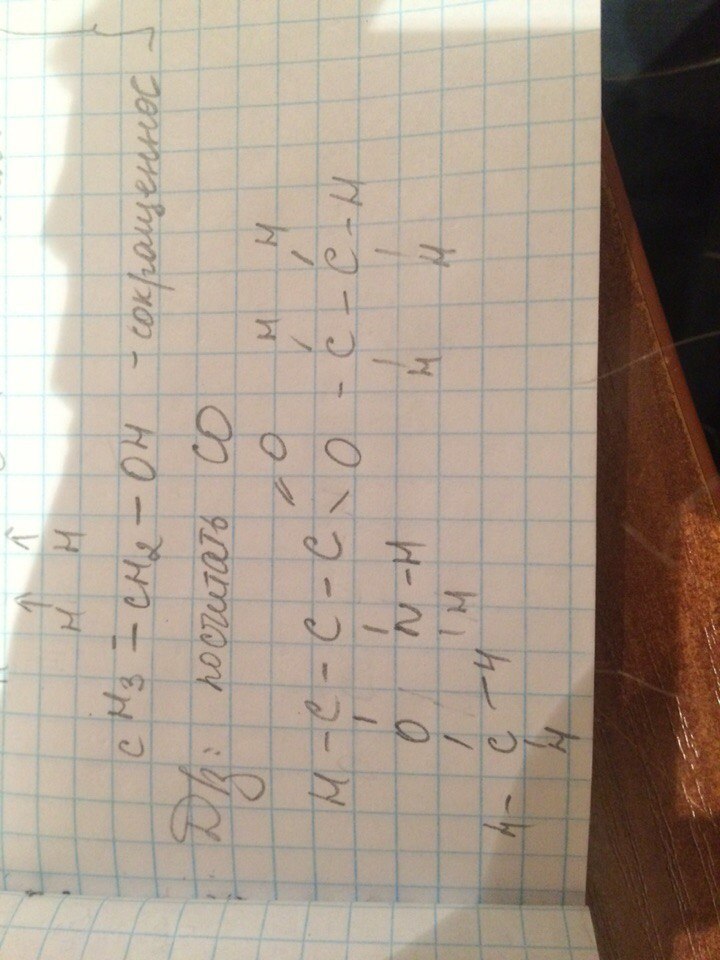 H H
CH3 – CH2 – OH – сокращенное
Дз: посчитать СО
O H H
H – C – C – C O – C – C – H
O N – H H H
H
H – C – H
H